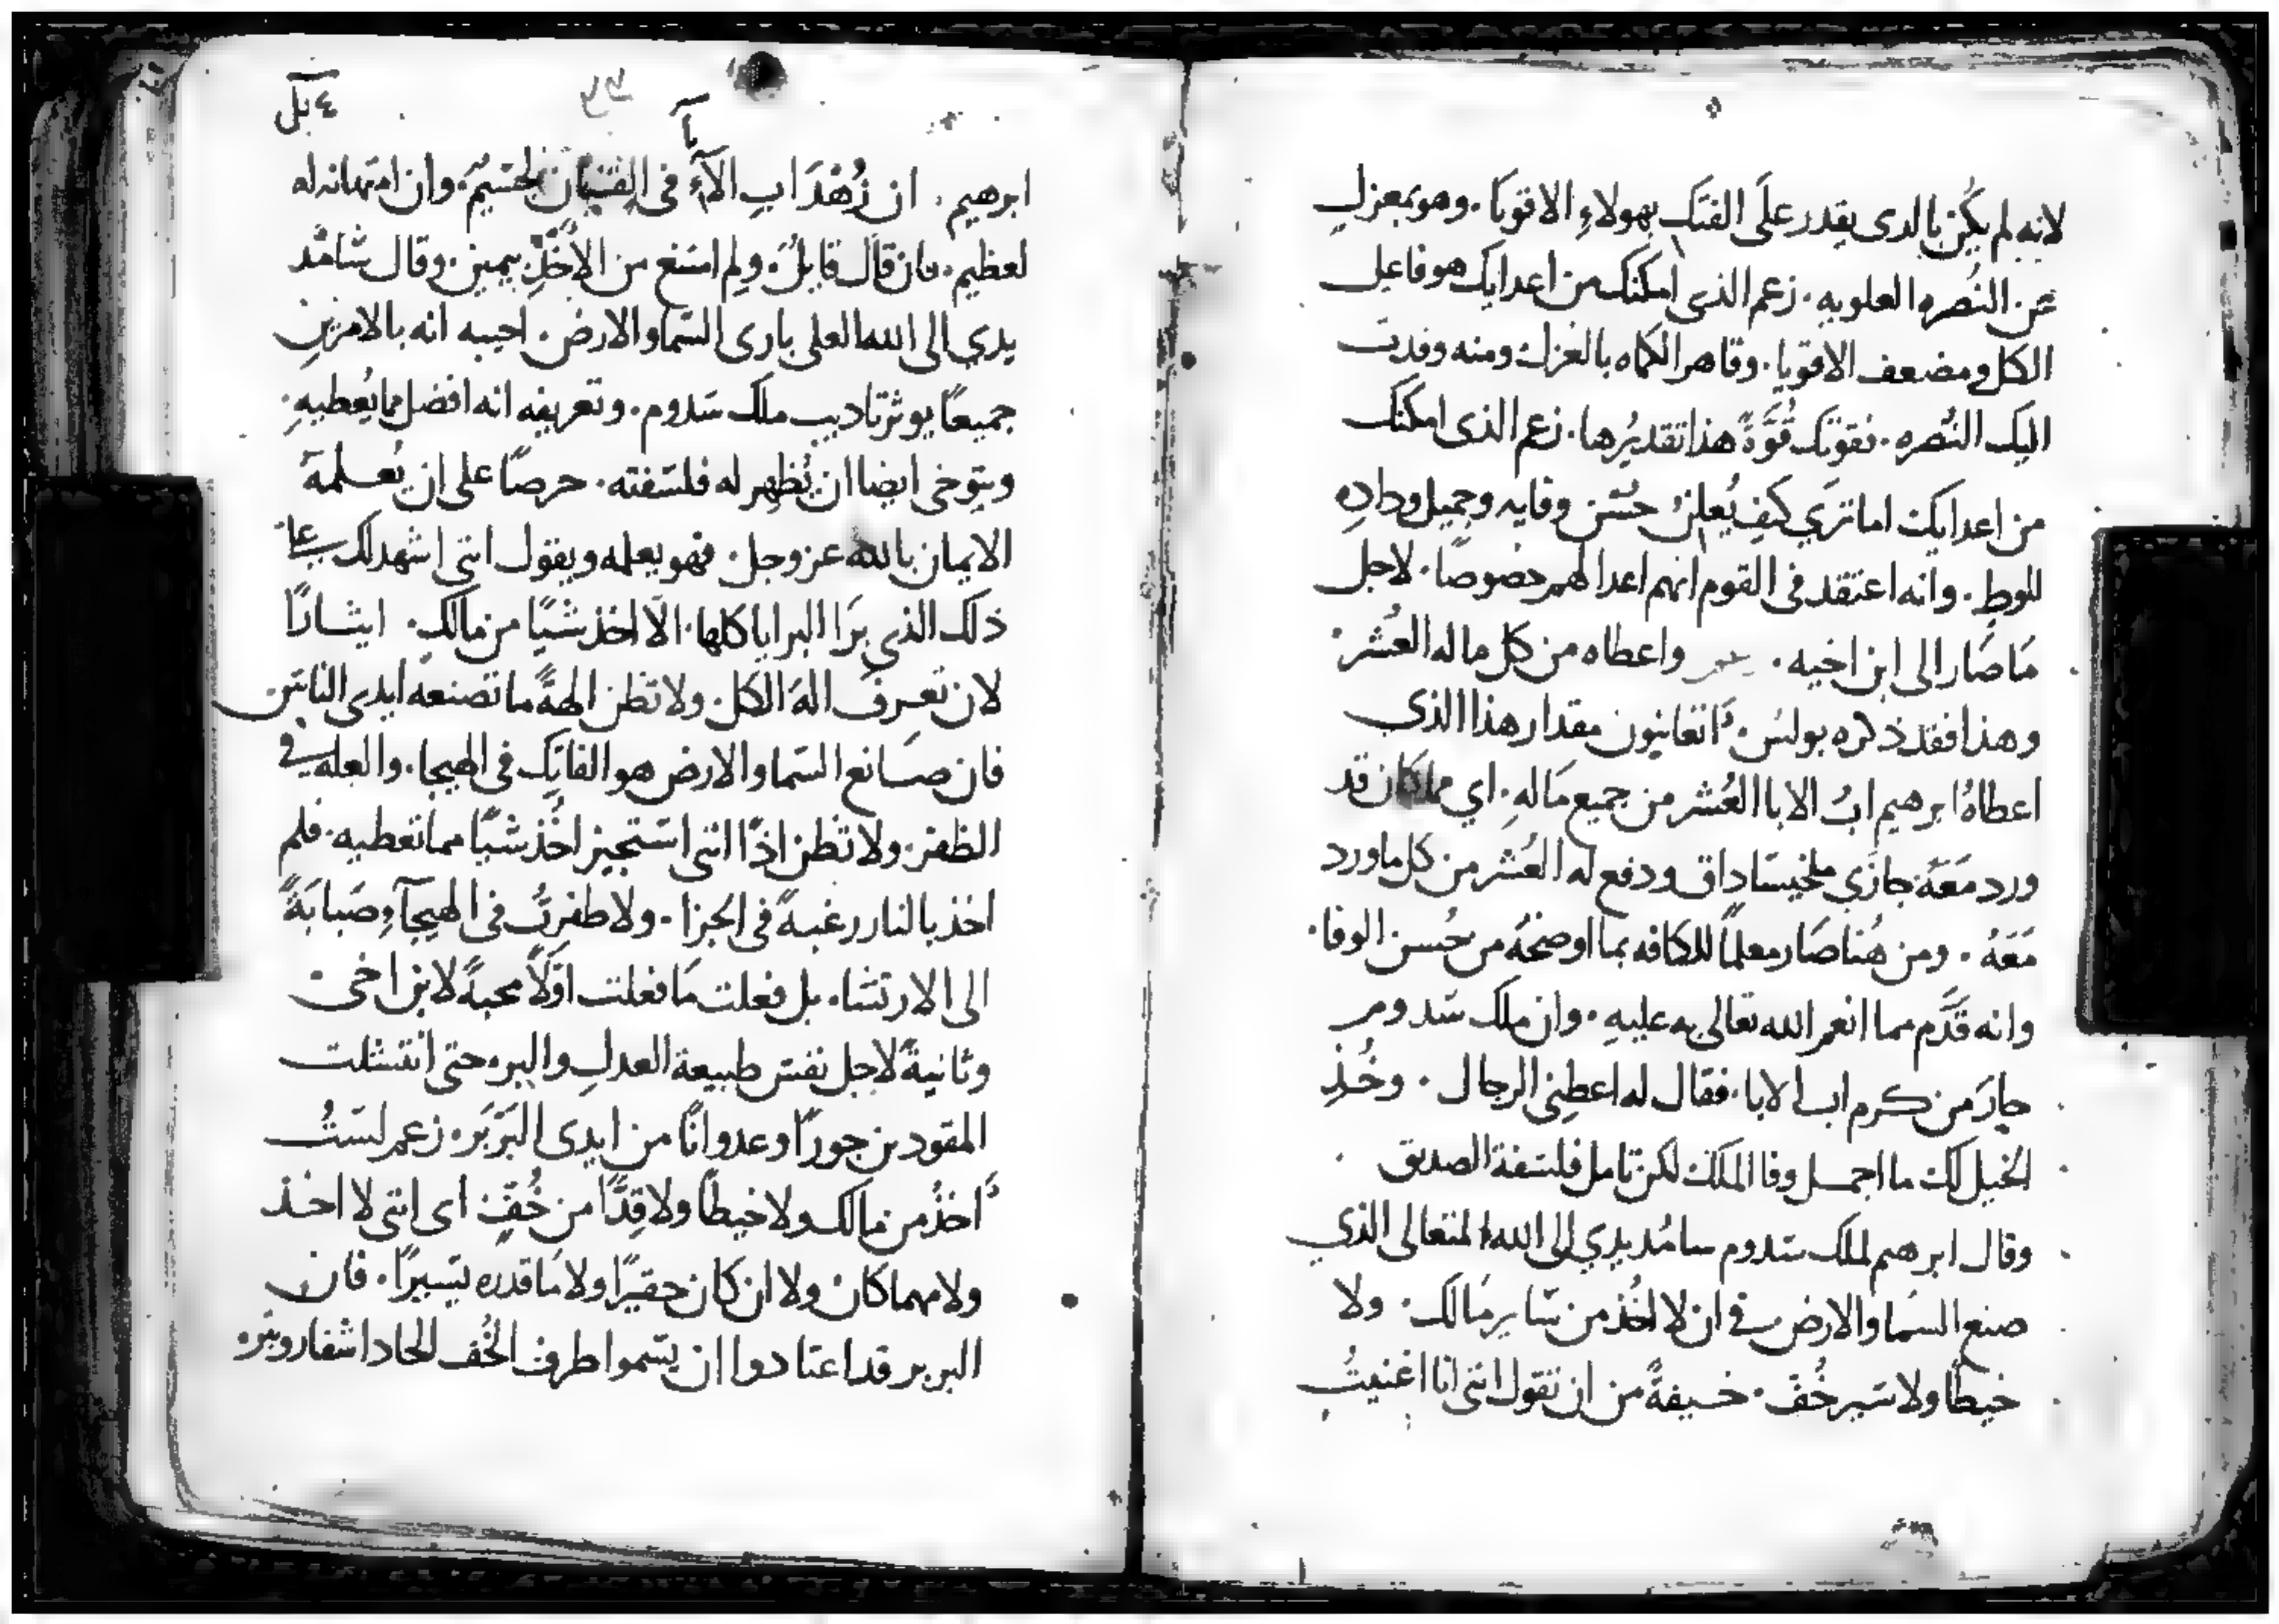 لانه لم يكن بالدى يقدر على الفتك بهولاءِ الاقويا. وهو بمعزلٍ
عن النصره العلويه. زعم الذى امكنك من اعدايك هو فاعل
الكل ومضعف الاقويا. وقاهر الكماه بالعزل ومنه وفدت
اليك النُصره. نقوتك قُوَّةً هذا تقديرُها. زعم الذى امكنك
من اعدايك اما ترَي كيف يُعلن حسْن وفايه وجميل ودادِه
للوطٍ. وانه اعتقد فى القوم انهم اعدا لهم خصوصًا. لاجل
مَا صَار الى ابن اخيه. واعطاه من كل ماله العُشر.
وهذا فقد ذكره بولس. انعانيون مقدار هذا الذي
اعطاهُ ابرهيم ابُ الابا العُشر من جميع مَالهِ. اي مما كان قد
ورد مَعَهُ جازَي ملخيسَاداق ودفع له العُشر من كل ما ورد
مَعَهُ. ومن هُنا صَار معلمًا للكافه بما اوضحَهُ من حُسن الوفا.
وانه قَدَّم مما انعم الله تعالى به عليهِ. وان ملك سَدوم
حارَ من كرم اب الابا. فقال له اعطِنى الرجال. وخُذِ
الخيل لك ما اجمل وفا الملك لكن تامل فلسَفة الصديق
وقال ابرهيم لملك سَدوم سامُد يدي الى الله المتعالى الذي
صنع السَما والارض في ان لا اخُذ من سَاير مَالك. ولا
خيطًا ولا سَير خُفّ. خيفةً من ان تقول انني انا اغنيتُ
٤ بل
ابرهيم. ان زُهْدَ ابِ الآباءِ فى القنيان لجسَيمٌ. وان امتهانه له
لعظيم. فان قال قايلٌ. ولم امتنع من الاخْذِ بيمينٍ. وقال سَامُد
يدي الى الله العلى بارى السَما والارض. اجيبه انه بالامرَين
جميعًا يوثر تاديب ملك سَدوم. وتعريفه انه افضل مما يُعطيهِ.
ويتوخى ايضا ان يُظهر له فلسَفته. حرصًا على ان يُعلمهَ
الايمان بالله عز وجل. فهو يعلمه ويقول انني اشهد لك على
ذلك الذي بَرَا البرايا كلها. الّا اخذ شَيًا من مالكِ. ايثارًا
لان تعرفَ الهَ الكل. ولا تظن الهةً ما تصنعه ايدى الناسَ.
فان صانع السَما والارض هو الفاتِك فى الهيجا. والعله في
الظفر. ولا تظن اذًا انني اسَتجيز اخْذ شيًا مما تعطيه. فلم
اخذ بالثار رغبةً فى الجزا. ولا ظفرتُ فى الهيجآ وصَبابَةً
الى الارتشا. بل فعلت مَا فعلت اوّلًا محبةً لابن اخى
وثانيةً لاجل نفسَ طبيعة العدلِ والبر. حتى انتشلت
المقودين جورًا وعدوانًا من ايدى البَرْبَر. زعم لسَتُ
اخذُ من مالك ولا خيطًا ولا قِدًّا من خُفٍّ اى انني لا اخذ
ولا مهما كان ولا ان كان حقيرًا ولا مَا قدره يسَيرًا. فان
البربر قد اعتادوا ان يسَموا طرف الخُف الحاد اشفارويره